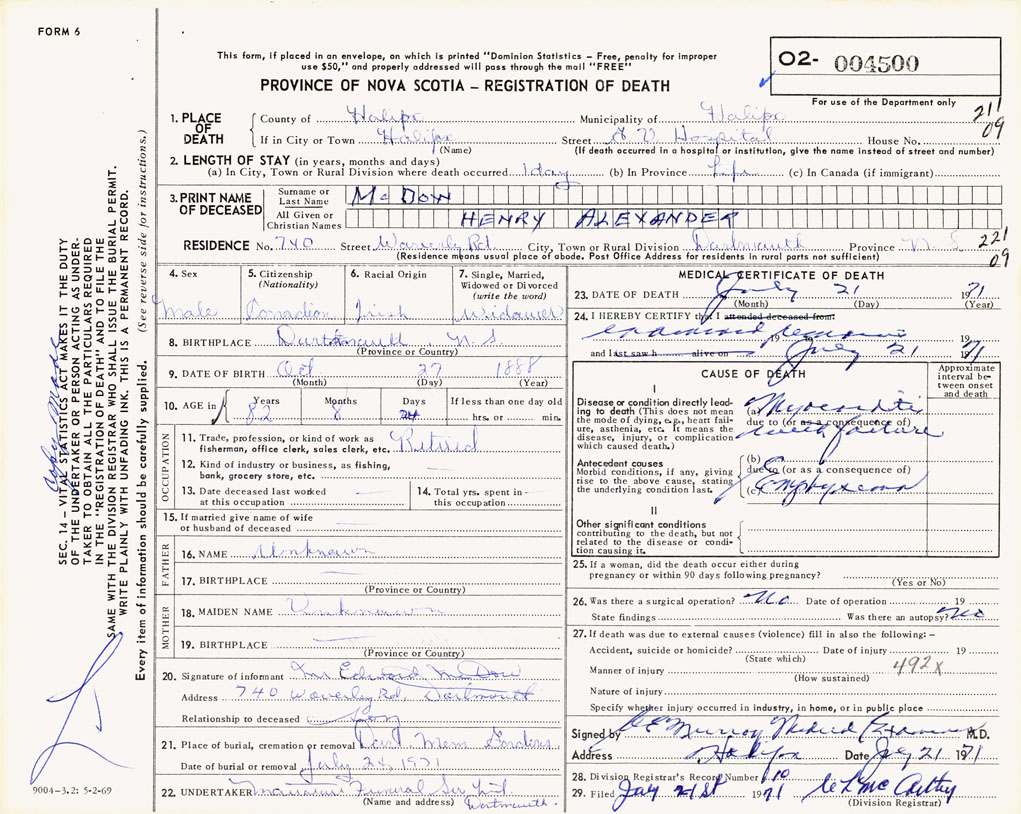 FORM 6
This form, if placed in an envelope, on which is printed "Dominion Statistics – Free, penalty for improper
use $50," and properly addressed will pass through the mail "FREE"
PROVINCE OF NOVA SCOTIA – REGISTRATION OF DEATH
O2- 004500
For use of the Department only
211
09
1. PLACE OF DEATH
County of Halifax Municipality of Halifax
If in City or Town Halifax Street Hospital House No.
(Name) (If death occurred in a hospital or institution, give the name instead of street and number)
2. LENGTH OF STAY (in years, months and days)
(a) In City, Town or Rural Division where death occurred 1 day (b) In Province Life (c) In Canada (if immigrant)
3. PRINT NAME OF DECEASED
Surname or Last Name McDOW
All Given or Christian Names HENRY ALEXANDER
RESIDENCE No. 740 Street Waverly Rd City, Town or Rural Division Dartmouth Province N.S.
221
09
(Residence means usual place of abode. Post Office Address for residents in rural parts not sufficient)
4. Sex
Male
5. Citizenship (Nationality)
Canadian
6. Racial Origin
Irish
7. Single, Married, Widowed or Divorced (write the word)
Widower
8. BIRTHPLACE Dartmouth N.S.
(Province or Country)
9. DATE OF BIRTH Oct 27 1888
(Month) (Day) (Year)
10. AGE in Years Months Days If less than one day old
82 8 24 hrs. or min.
OCCUPATION
11. Trade, profession, or kind of work as fisherman, office clerk, sales clerk, etc. Retired
12. Kind of industry or business, as fishing, bank, grocery store, etc.
13. Date deceased last worked at this occupation
14. Total yrs. spent in this occupation
15. If married give name of wife or husband of deceased
FATHER
16. NAME Unknown
17. BIRTHPLACE
(Province or Country)
MOTHER
18. MAIDEN NAME Unknown
19. BIRTHPLACE
(Province or Country)
20. Signature of informant Mr Edward McDow
Address 740 Waverley Rd, Dartmouth
Relationship to deceased Son
21. Place of burial, cremation or removal Dart Mem Gardens
Date of burial or removal July 24, 1971
22. UNDERTAKER Funeral Ser
(Name and address) Dartmouth
MEDICAL CERTIFICATE OF DEATH
23. DATE OF DEATH July 21 1971
(Month) (Day) (Year)
24. I HEREBY CERTIFY that I attended deceased from:
examined remains 19
and last saw h alive on July 21 1971
CAUSE OF DEATH
Approximate interval between onset and death
I
Disease or condition directly leading to death (This does not mean the mode of dying, e.g., heart failure, asthenia, etc. It means the disease, injury, or complication which caused death.)
(a) Myocarditis
due to (or as a consequence of)
failure
Antecedent causes
Morbid conditions, if any, giving rise to the above cause, stating the underlying condition last.
(b)
due to (or as a consequence of)
(c) Emphysema
II
Other significant conditions contributing to the death, but not related to the disease or condition causing it.
25. If a woman, did the death occur either during pregnancy or within 90 days following pregnancy?
(Yes or No)
26. Was there a surgical operation? No Date of operation 19
State findings Was there an autopsy? No
27. If death was due to external causes (violence) fill in also the following: –
Accident, suicide or homicide? Date of injury 19
(State which)
Manner of injury 492x
(How sustained)
Nature of injury
Specify whether injury occurred in industry, in home, or in public place
Signed by Murray Medical Examiner M.D.
Address Halifax Date July 21 1971
28. Division Registrar's Record Number 610
29. Filed July 21st 1971 McCarthy
(Division Registrar)
SEC. 14 – VITAL STATISTICS ACT MAKES IT THE DUTY
OF THE UNDERTAKER OR PERSON ACTING AS UNDER-
TAKER TO OBTAIN ALL THE PARTICULARS REQUIRED
IN THE "REGISTRATION OF DEATH" AND TO FILE THE
SAME WITH THE DIVISION REGISTRAR WHO SHALL ISSUE THE BURIAL PERMIT.
WRITE PLAINLY WITH UNFADING INK. THIS IS A PERMANENT RECORD.
Every item of information should be carefully supplied. (See reverse side for instructions.)
Copy Made
9004-3.2: 5-2-69